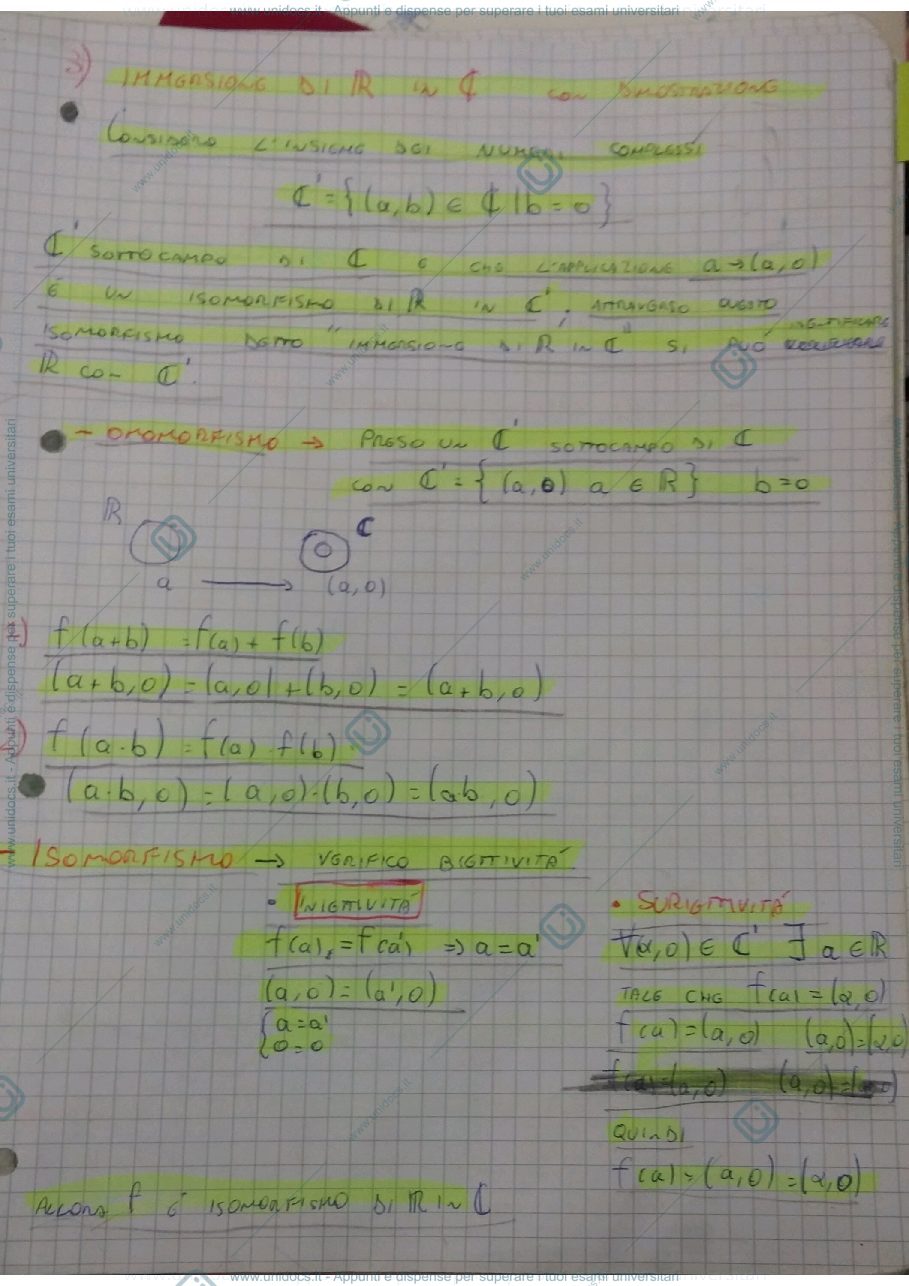 www.unidocs.it - Appunti e dispense per superare i tuoi esami universitari
3) IMMERSIONE DI ℝ IN ℂ CON DIMOSTRAZIONE
CONSIDERO L'INSIEME DEI NUMERI COMPLESSI
ℂ' = {(a,b) ∈ ℂ | b = 0}
ℂ' SOTTOCAMPO DI ℂ E CHE L'APPLICAZIONE a → (a,0)
È UN ISOMORFISMO DI ℝ IN ℂ'. ATTRAVERSO QUESTO
ISOMORFISMO DETTO "IMMERSIONE DI ℝ IN ℂ" SI PUÒ IDENTIFICARE
ℝ CON ℂ'.
- OMOMORFISMO → PRESO UN ℂ' SOTTOCAMPO DI ℂ
CON ℂ' = {(a,0) a ∈ ℝ} b=0
ℝ ℂ
a → (a,0)
1) f(a+b) = f(a) + f(b)
(a+b,0) = (a,0) + (b,0) = (a+b,0)
2) f(a·b) = f(a)·f(b)
(a·b,0) = (a,0)·(b,0) = (ab,0)
- ISOMORFISMO → VERIFICO BIETTIVITÀ
• INIETTIVITÀ
f(a) = f(a') => a = a'
(a,0) = (a',0)
{ a = a'
0 = 0
• SURIETTIVITÀ
∀(α,0) ∈ ℂ' ∃ a ∈ ℝ
TALE CHE f(a) = (α,0)
f(a) = (a,0) (a,0) = (α,0)
QUINDI
f(a) = (a,0) = (α,0)
ALLORA f È ISOMORFISMO DI ℝ IN ℂ
www.unidocs.it - Appunti e dispense per superare i tuoi esami universitari